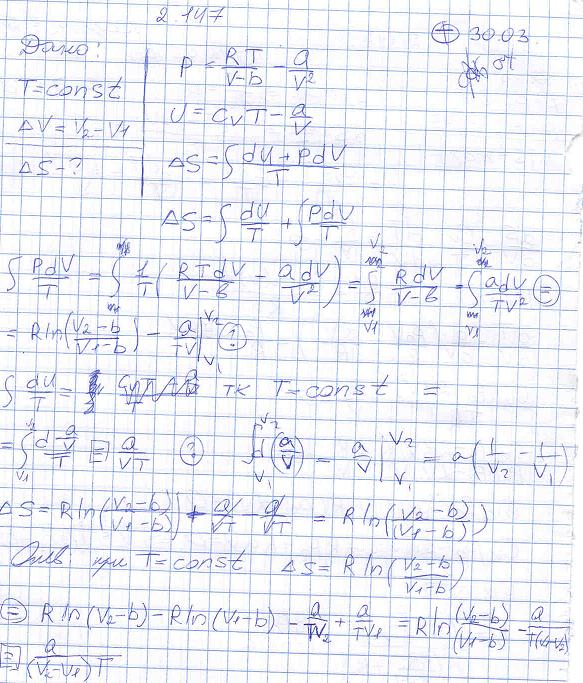 2.147
Дано:
T=const
ΔV=V₂-V₁
ΔS-?
P = RT/(V-b) - a/V²
U = CᵥT - a/V
ΔS = ∫ (dU+PdV)/T
ΔS = ∫ dU/T + ∫ PdV/T
⊕ 30.03
∫ PdV/T = ∫ 1/T (RTdV/(V-б) - adV/V²) = ∫_{V₁}^{V₂} RdV/(V-б) = ∫_{V₁}^{V₂} adV/TV² ⊜
= Rln((V₂-b)/(V₁-b)) - a/TV |_{V₁}^{V₂} ?
∫ dU/T = тк T=const =
= ∫_{V₁} d a/V /T = a/VT ? ∫_{V₁}^{V₂} d(a/V) = a/V |_{V₁}^{V₂} = a(1/V₂ - 1/V₁)
ΔS = Rln((V₂-b)/(V₁-b)) + a/VT - a/VT = Rln((V₂-b)/(V₁-b))
Отв: при T=const ΔS = Rln((V₂-b)/(V₁-b))
⊜ Rln(V₂-b) - Rln(V₁-b) - a/TV₂ + a/TV₁ = Rln((V₂-b)/(V₁-b)) - a/T(V₁-V₂)
= a/(V₂-V₁)T